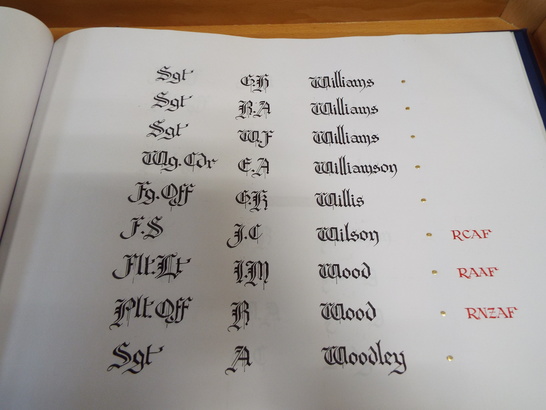 Sgt G.H Williams
Sgt R.A Williams
Sgt W.F Williams
Wg.Cdr E.A Williamson
Fg.Off G.H Willis
F.S J.C Wilson RCAF
Flt.Lt I.M Wood RAAF
Plt.Off R Wood RNZAF
Sgt A Woodley